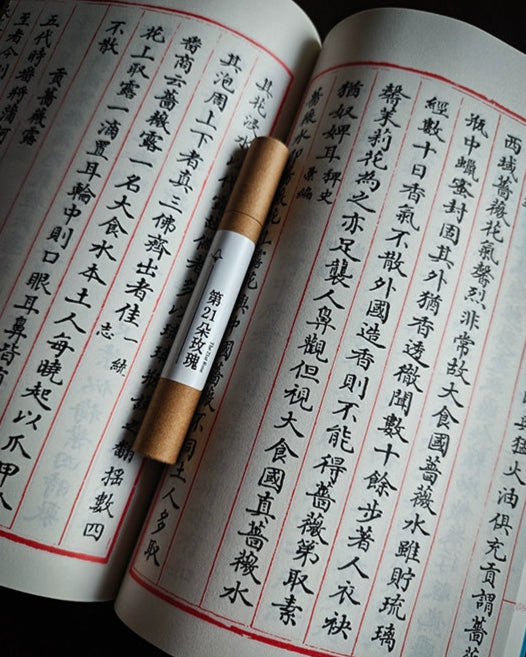 猛火油俱充貢謂薔
西域薔薇花氣馨烈非常故大食國薔薇水雖貯琉璃
瓶中蠟蜜封固其外猶香透徹聞數十餘步著人衣袂
經數十日香氣不散外國造香則不能得薔薇第取素
馨茉莉花為之亦足襲人鼻觀但視大食國真薔薇水
猶奴婢耳稗史
彙編
薔薇水即
土人多取
其花浸水以代
翻搖數四
其泡周上下者真三佛齊出者佳一統
志
番商云薔薇露一名大食水本土人每曉起以爪甲
花上取露一滴置耳輪中則口眼耳鼻皆有
不散
貢薔薇露
五代時番將蒲訶
至者今則
第21朵玫瑰